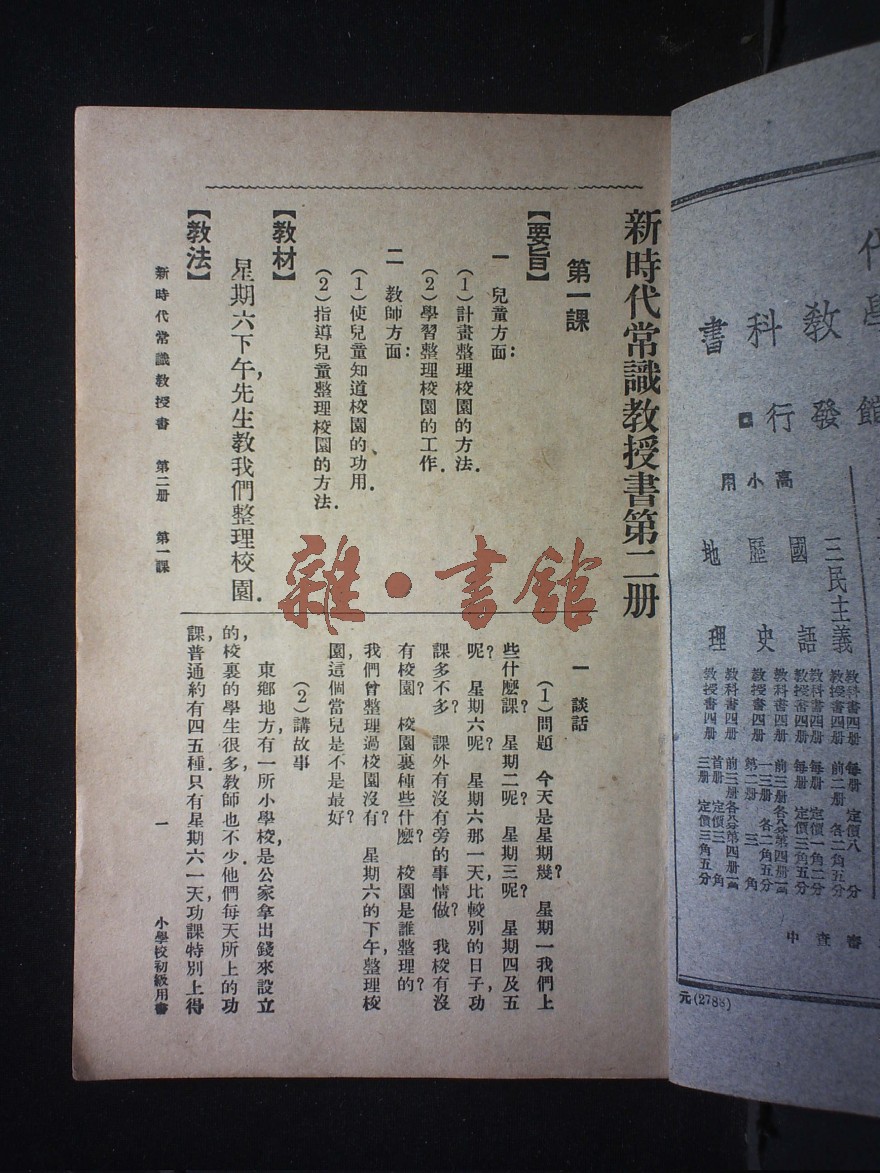 新時代常識教授書第二册
第一課
【要旨】
一 兒童方面：
(1)計畫整理校園的方法．
(2)學習整理校園的工作．
二 教師方面：
(1)使兒童知道校園的功用．
(2)指導兒童整理校園的方法．
【教材】
星期六下午，先生教我們整理校園．
【教法】
一 談話
(1)問題 今天是星期幾？ 星期一我們上
些什麼課？ 星期二呢？ 星期三呢？ 星期四及五
呢？ 星期六呢？ 星期六那一天，比較別的日子，功
課多不多？ 課外有沒有旁的事情做？ 我校有沒
有校園？ 校園裏種些什麼？ 校園是誰整理的？
我們曾整理過校園沒有？ 星期六的下午，整理校
園，這個當兒是不是最好？
(2)講故事
東鄉地方，有一所小學校，是公家拿出錢來設立
的，校裏的學生很多，教師也不少．他們每天所上的功
課，普通約有四五種．只有星期六一天，功課特別上得
新時代常識教授書 第二册 第一課
一
小學校初級用書
雜·書館
館
發
行
教
科
書
高小用
三民主義
教科書四册 每册 定價八分
教授書四册
國語
教科書四册
教授書四册 每册 定價三角五分
歷史
教科書四册
教授書四册
地理
教科書四册
教授書四册
三册 定價三角五分
審查中
元(2788)